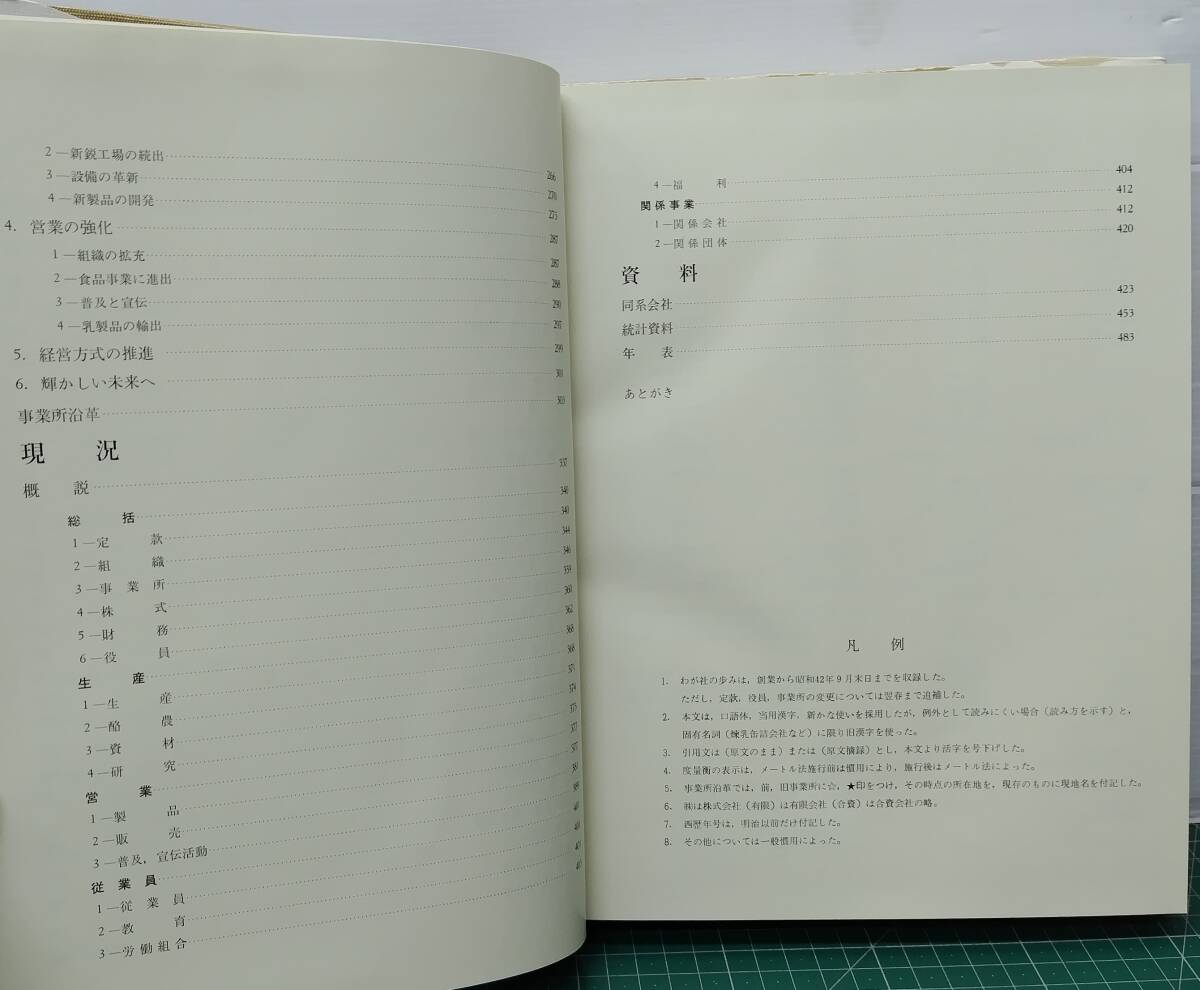 2―新鋭工場の続出 266
3―設備の革新 270
4―新製品の開発 275
4. 営業の強化 287
1―組織の拡充 287
2―食品事業に進出 288
3―普及と宣伝 293
4―乳製品の輸出 297
5. 経営方式の推進 299
6. 輝かしい未来へ 301
事業所沿革 303
現 況
概 説 337
総 括 340
1―定 款 340
2―組 織 344
3―事業所 346
4―株 式
5―財 務
6―役 員
生 産
1―生 産
2―酪 農
3―資 材
4―研 究
営 業
1―製 品
2―販 売
3―普及，宣伝活動
従業員
1―従業員
2―教 育
3―労働組合
4―福 利 404
関係事業 412
1―関係会社 412
2―関係団体 420
資 料
同系会社 423
統計資料 453
年 表 483
あとがき
凡 例
1. わが社の歩みは，創業から昭和42年9月末日までを収録した。
ただし，定款，役員，事業所の変更については翌春まで追補した。
2. 本文は，口語体，当用漢字，新かな使いを採用したが，例外として読みにくい場合（読み方を示す）と，
固有名詞（煉乳缶詰会社など）に限り旧漢字を使った。
3. 引用文は（原文のまま）または（原文摘録）とし，本文より活字を号下げした。
4. 度量衡の表示は，メートル法施行前は慣用により，施行後はメートル法によった。
5. 事業所沿革では，前，旧事業所に☆，★印をつけ，その時点の所在地を，現存のものに現地名を付記した。
6. ㈱は株式会社（有限）は有限会社（合資）は合資会社の略。
7. 西歴年号は，明治以前だけ付記した。
8. その他については一般慣用によった。